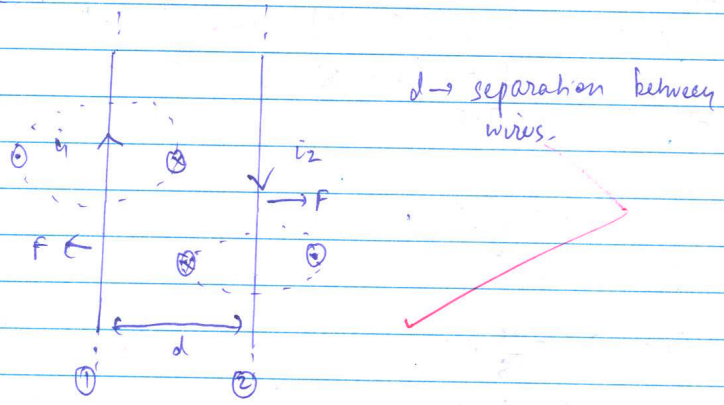 d → separation between
wires.
i₁
i₂
→ F
F ←
d
① ②